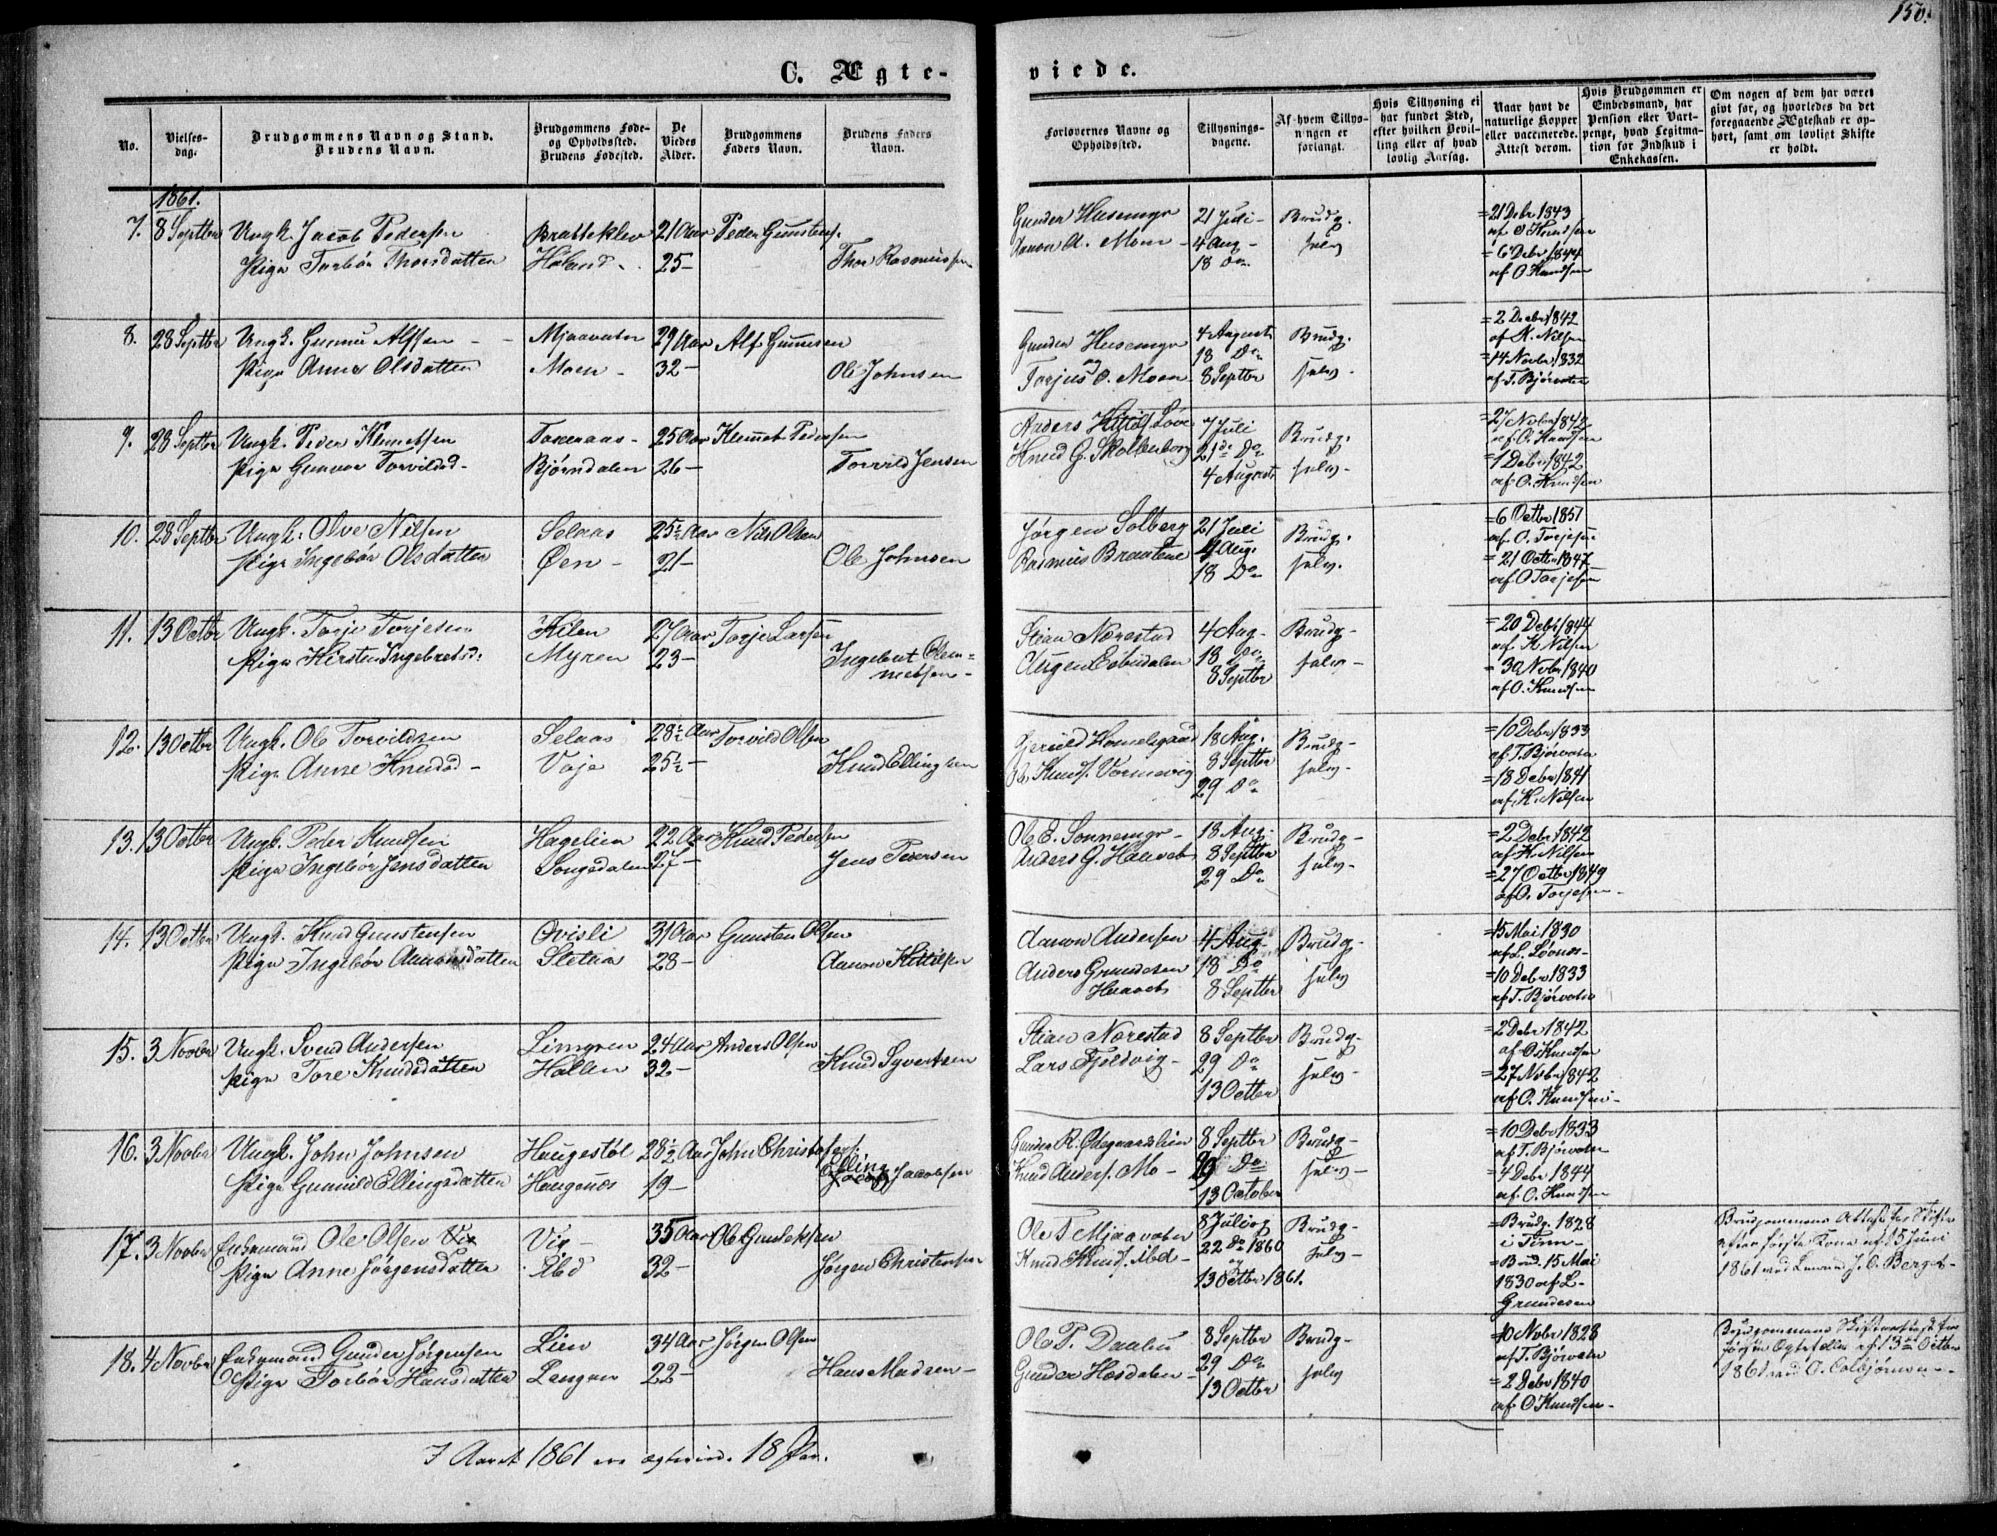 150.
C. Ægte-
viede.
No.
Vielses-
dag.
Brudgommens Navn og Stand.
Brudens Navn.
Brudgommens Føde-
og Opholdssted.
Brudens Fødested.
De
Viedes
Alder.
Brudgommens
Faders Navn.
Brudens Faders
Navn.
Forlovernes Navne og
Opholdssted.
Tillysnings-
dagene.
Af hvem Tillys-
ningen er
forlangt.
Hvis Tillysning ei
har fundet Sted,
efter hvilken Bevil-
ling eller af hvad
lovlig Aarsag.
Naar havt de
naturlige Kopper
eller vaccinerede.
Attest derom.
Hvis Brudgommen er
Embedsmand, har
Pension eller Vart-
penge, hvad Legitma-
tion for Indskud i
Enkekassen.
Om nogen af dem har været
givt før, og hvorledes da det
foregaaende Ægteskab er op-
hørt, samt om lovligt Skifte
er holdt.
1861.
7. 8 Septbr Ungk. Jacob Pedersen Bratteklev 21 Aar Peder Gunstens.
Pige Torbør Thorsdatter Haland 25 - Thor Rasmussen
Gunder Husemyr 21 Juli - Brudg. = 21 Debr 1843
Aanon A. Moen - 4 Aug - selv af O Knudsen
18 Do = 6 Debr 1844
af O. Knudsen
8. 28 Septbr Ungk. Gunnu Alfsen - - Mjaavatn 29 Aar Alf Gunnesen
Pige Anne Olsdatter Moen - 32 - Ole Johnsen
Gunder Husemyr 4 August Brudg. = 2 Debr 1842
og 18 Do af K. Nilsen
Torjus O. Moen 8 Septbr selv - = 14 Novbr 1832
af T. Bjørvatn
9. 28 Septbr Ungk. Peder Klemetsen Toreraas - 25 Aar Klemet Pedersen
Pige Gunvor Torvildsd - Bjørndalen 26 - Torvild Jensen
Anders Kittils Løve 7 Juli Brudg. = 27 Novbr 1842
Knud G. Skollenborg 21de Do selv - af O. Knudsen
4 August = 1 Debr 1842
af O. Knudsen
10. 28 Septbr Ungk. Olve Nilsen Selaas 25½ Aar Nils Olsen
Pige Ingebør Olsdatter Øen - 21 - Ole Johnsen
Jørgen Solberg 21 Juli Brudg. = 6 Octbr 1851
Rasmus Braatene 4 Aug. selv. af O. Torjesen
18 Do = 21 Octbr 1847
af O Torjesen
11. 13 Octbr Ungk. Torje Torjesen Kilen 27 Aar Torje Larsen
Pige Kirsten Ingebretsd: Myren 23 - Ingebret Clem-
metsen -
Stian Nærestad 4 Aug - Brudg - = 20 Debr 1844
18 Do selv - af K Nilsen
8 Septbr = 30 Novbr 1840
af O. Knudsen
12. 13 Octbr Ungk. Ole Torvildsen Selaas 28½ Aar Torvild Olsen
Pige Anne Knudsd - Voje 25½ - Knud Ellingsen
18 Aug. Brudg - = 10 Debr 1833
Ole Knuds. Vormevig 8 Septbr selv - af T. Bjørvatn
29 Do = 18 Debr 1841
af K. Nilsen
13. 13 Octbr Ungk. Peder Knudsen Hagelien 22 Aar Knud Pedersen
Pige Ingebør Jensdatter Songedalen 27 - Jens Pedersen
Ole E. Sonnemyr - 18 Aug - Brudg - = 2 Debr 1842
Anders G. Haavet 8 Septbr selv - af K. Nilsen
29 Do = 27 Octbr 1849
af O. Torjesen -
14. 13 Octbr Ungk. Knud Gunstensen Qvisli 31 Aar Gunsten Olsen
Pige Ingebør Aanonsdatter Sletaa 28 - Aanon Kittilsen
Aanon Andersen 4 Aug - Brudg - = 15 Mai 1830
Anders Grundesen 18 Do selv af L. Løvaas -
Haavet 8 Septbr = 10 Debr 1833
af T. Bjørvatn
15. 3 Novbr Ungk. Svend Andersen Limyren 24 Aar Anders Olsen
Pige Tore Knudsdatter Hallen 32 - Knud Syvertsen
Stian Nærestad 8 Septbr Brudg - = 2 Debr 1842
Lars Fjeldvig - 29 Do selv - af O. Knudsen
13 Octbr = 27 Novbr 1842
af O. Knudsen -
16. 3 Novbr Ungk. John Johnsen Haugestøl 28½ Aar John Christofers.
Pige Gunnild Ellingsdatter Haugenes 19 - Elling Jacobsen
Gunder R. Ødegaardslien 8 Septbr Brudg - = 10 Debr 1833
Knud Anders. Mo - 29 Do selv - af T. Bjørvatn
13 October = 4 Debr 1844
af O. Knudsen
17. 3 Novbr Enkemand Ole Olsen Vie Vie - 35 Aar Ole Gundersen
Pige Anne Jørgensdatter Ubd 32 - Jørgen Christensen
Ole T Mjaavatn 8 Juli og Brudg - = Brudg. 1828
Knud Knuds. Ubd - 22 Do 1860 selv - i Tinn -
og = Brud. 15 Mai
13 Octbr 1861. 1830 af L -
Grundesen
Brudgommens Attest for Skifte
efter første Kone af 5 Juni
1861 ved J. C. Berge -
18. 4 Novbr Enkemand Gunder Jørgensen Lien 34 Aar Jørgen Olsen
Pige Torbør Hansdatter Langen 22 - Hans Madsen -
Ole P. Daalen 8 Septbr Brudg - = 10 Novbr 1828
Gunder Hosdalen - 29 Do selv af T. Bjørvatn
13 Octbr = 2 Debr 1840
af O Knudsen -
Brudgommens Skifteattest for
1861 ved O. Colbjørnsen -
I Aaret 1861 ere ægteviede 18 Par.